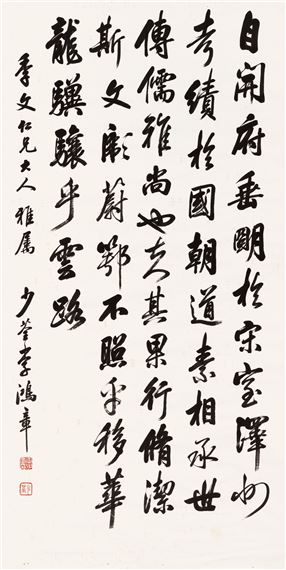 自開府垂朙於宋室澤州
考績於國朝道素相承世
傳儒雅尚也夫其果行脩潔
斯文彪蔚鄂不照乎移華
龍驥驤乎雲路
季文仁兄大人雅屬
少荃李鴻章